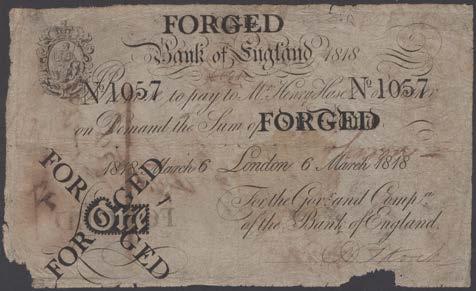 FORGED
Bank of England 1818
No 1057 to pay to Mr Henry Hase No 1057
on Demand the Sum of FORGED
1818 March 6 London 6 March 1818
For the Govr and Compa
of the Bank of England.
FORGED
One
FORGED